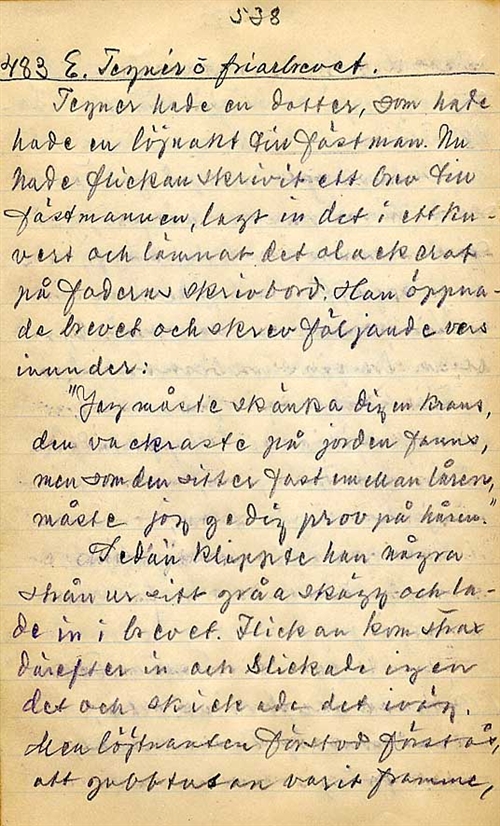 538
483 E. Tegnér o friarbrevet.
Tegner hade en dotter, som hade
hade en löjnakt till fästman. Nu
hade flickan skrivit ett brev till
fästmannen, lagt in det i ett ku-
vert och lämnat det olackerat
på faderns skrivbord. Han öppna-
de brevet och skrev följande vers
inunder:
"Jag måste skänka dig en krans,
den vackraste på jorden fanns,
men som den sitter fast emellan låren,
måste jag ge dig prov på håren."
Sedan klippte han några
strån ur sitt gråa skägg och la-
de in i brevet. Flickan kom strax
därefter in och slickade igen
det och skickade det iväg.
Men löjtnanten förstod förstås,
att gubbtusan varit framme,